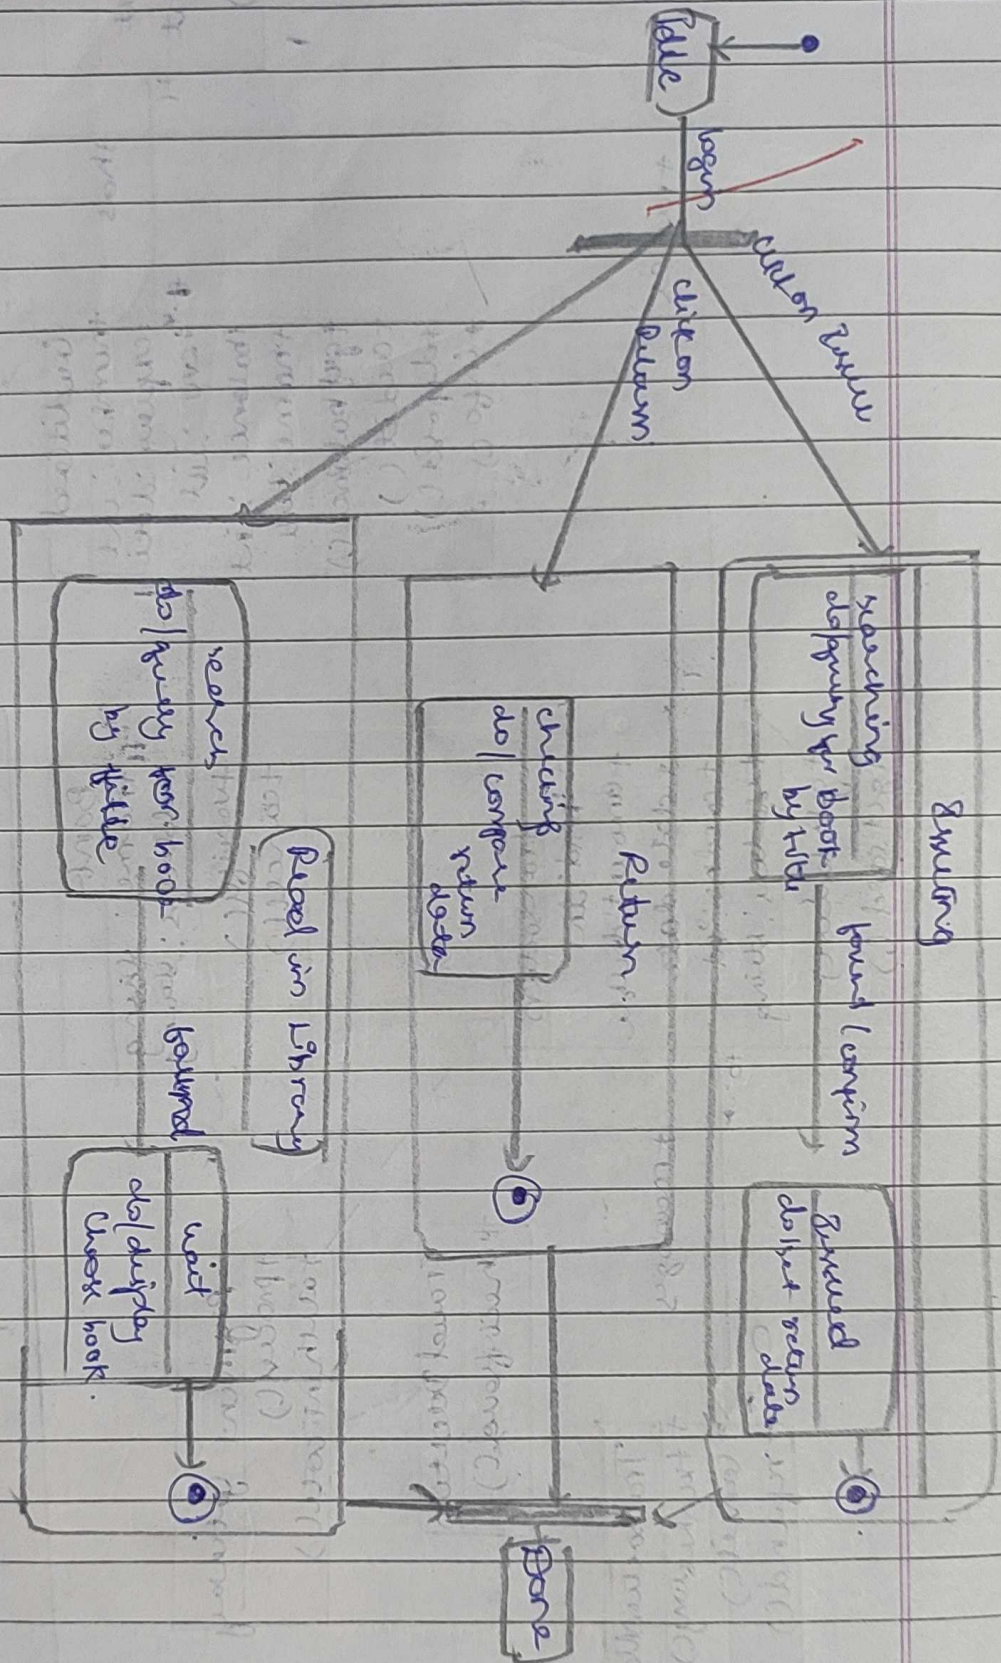 Idle
login
click on Issue
click on
Return
Issuing
searching
do/query for book
by title
found / confirm
Issued
do/set return
date
Return
checking
do/ compare
return
data
search
do/query for book
by title
Read in Library
found
wait
do/display
choose book.
Done